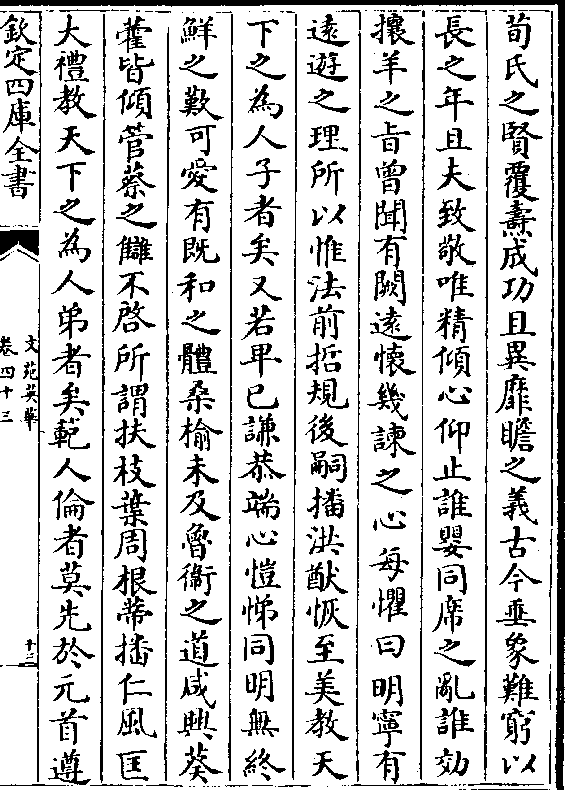 荀氏之賢覆燾成功且異靡瞻之義古今垂象難窮以
長之年且夫致敬唯精傾心仰止誰嬰同席之亂誰効
攘羊之㫖曾聞有闕遠懷幾諫之心每懼曰明寧有
逺遊之理所以惟法前哲規後嗣播洪猷恢至美教天
下之為人子者矣又若卑已謙恭端心愷悌同明無終
鮮之歎可愛有既和之體桑榆未及魯衛之道咸興葵
藿皆傾管蔡之讎不啓所謂扶枝葉周根蔕播仁風匡
大禮教天下之為人弟者矣範人倫者莫先於元首遵
欽定四庫全書
文苑英華
卷四十三
十三